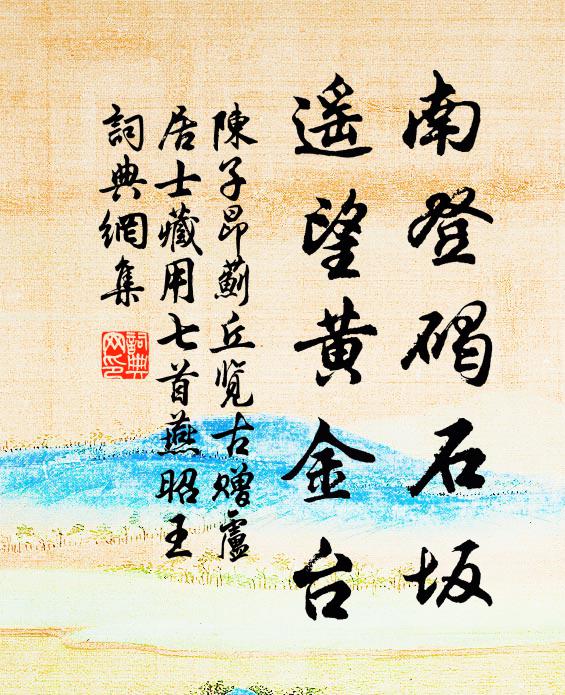 南登碣石坂
遥望黄金台
陳子昂薊丘览古赠盧
居士藏用七首燕昭王
詞典網集
詞典
网印